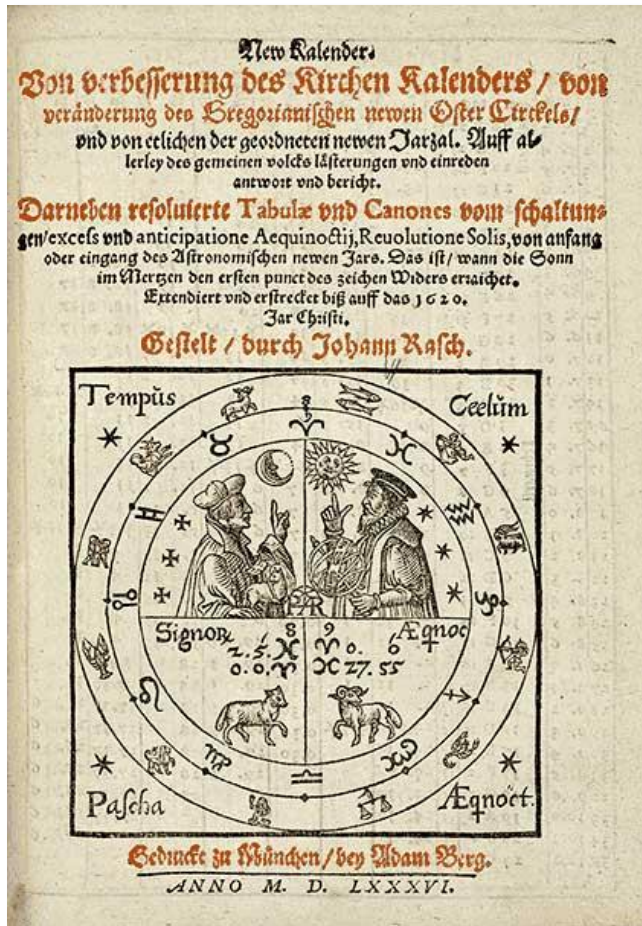 New Kalender.
Von verbesserung des Kirchen Kalenders / von
veränderung des Gregorianischen newen Oster Circkels /
vnd von etlichen der geordneten newen Jarzal. Auff al-
lerley des gemeinen volcks lästerungen vnd einreden
antwort vnd bericht.
Darneben resoluierte Tabulæ vnd Canones vom schaltun-
gen/excess vnd anticipatione Aequinoctij, Reuolutione Solis, von anfang
oder eingang des Astronomischen newen Jars. Das ist / wann die Sonn
im Mertzen den ersten punct des zeichen Widers erraichet.
Extendiert vnd erstrecket biß auff das 1620.
Jar Christi.
Gestelt / durch Johann Rasch.
Tempũs
Cœlum
Signoꝝ
8 9
Æqnoc
2. 5. ♓ ♈ 0. 6
0. 0. ♈ ♓ 27. 55
Pascha
Æqnoct.
Gedruckt zu München / bey Adam Berg.
ANNO M. D. LXXXVI.